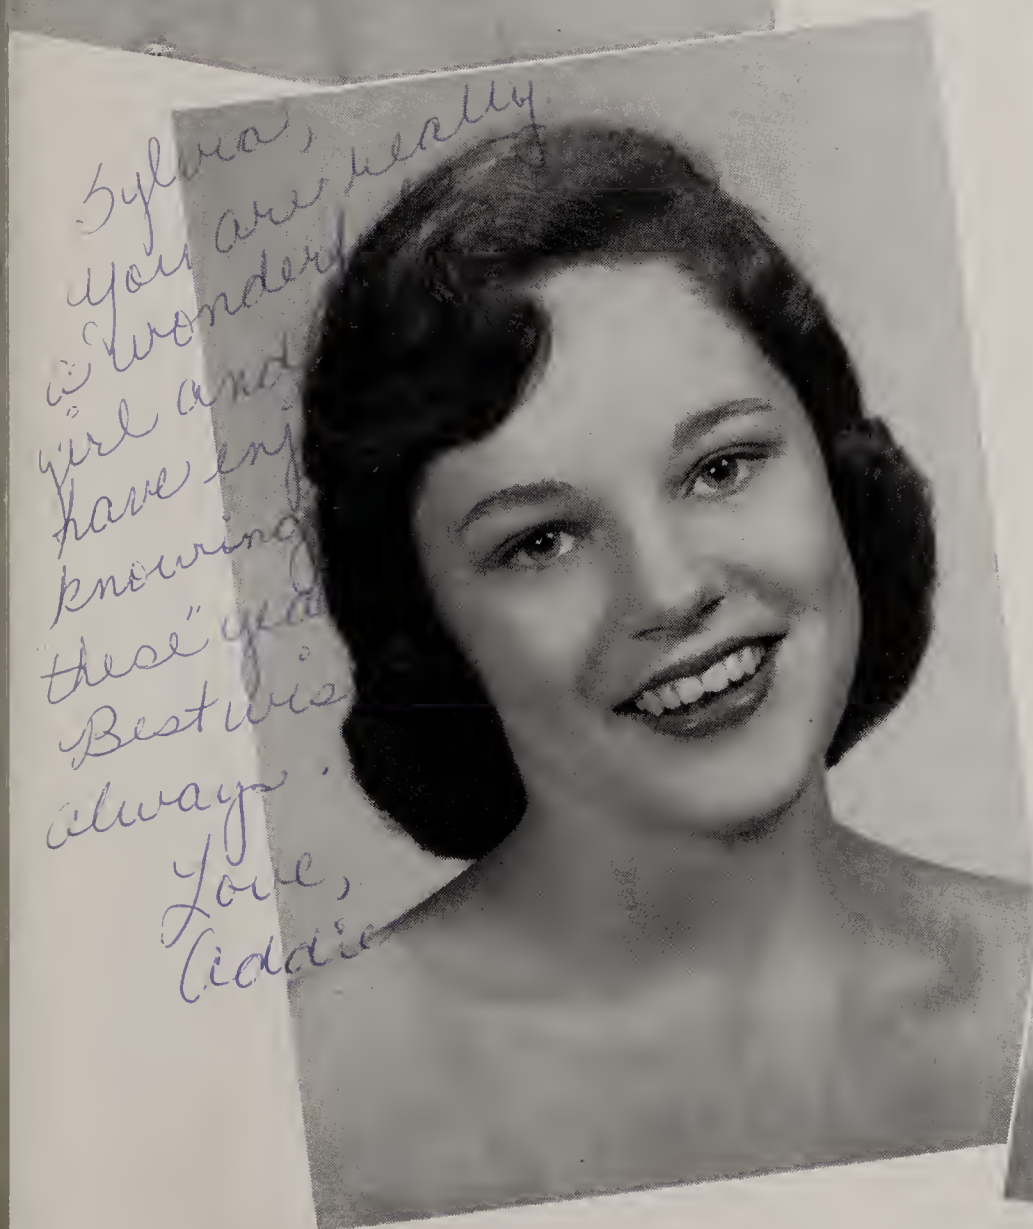 Sylvia,
You are really
a wonderf
girl and
have enj
knowing
"these" yea
Best wis
always.
Love,
Addie